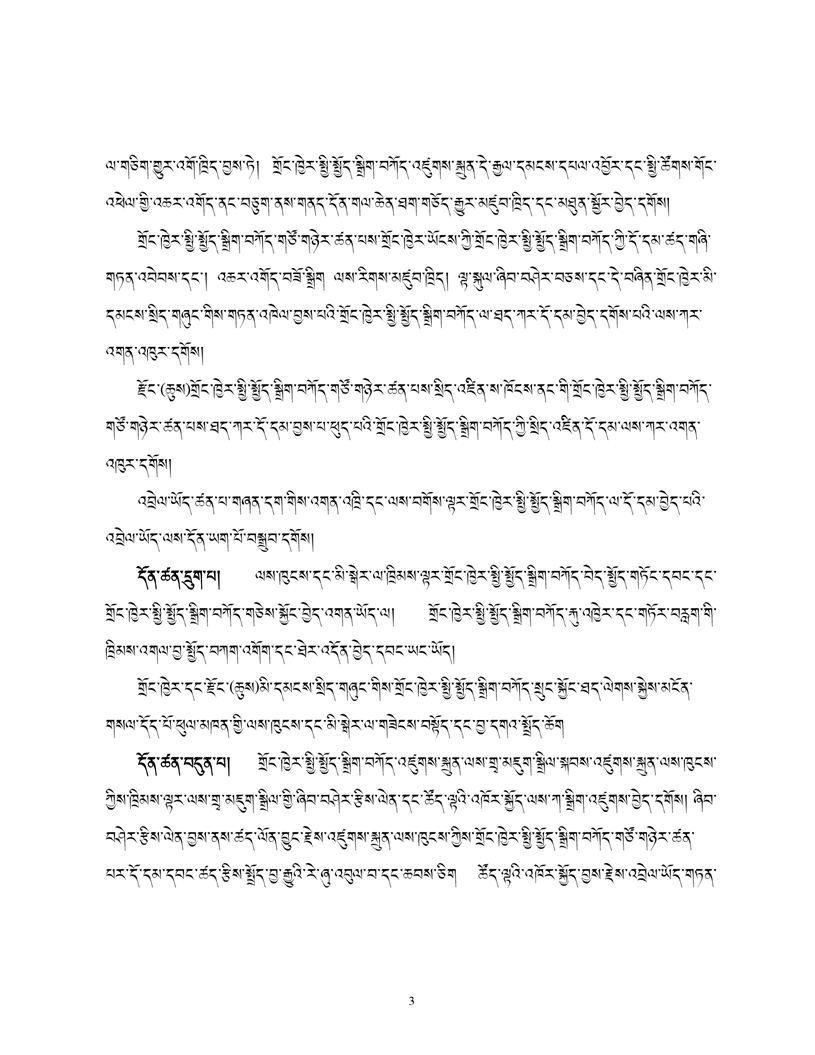 ལ་གཅིག་གྱུར་འགོ་ཁྲིད་བྱས་ཏེ། གྲོང་ཁྱེར་སྤྱི་སྤྱོད་སྒྲིག་བཀོད་འཛུགས་སྐྲུན་དེ་རྒྱལ་དམངས་དཔལ་འབྱོར་དང་སྤྱི་ཚོགས་གོང་
འཕེལ་གྱི་འཆར་འགོད་ནང་བཅུག་ནས་གནད་དོན་གལ་ཆེན་ཐག་གཅོད་རྒྱུར་མཛུབ་ཁྲིད་དང་མཐུན་སྦྱོར་བྱེད་དགོས།
གྲོང་ཁྱེར་སྤྱི་སྤྱོད་སྒྲིག་བཀོད་གཙོ་གཉེར་ཚན་པས་གྲོང་ཁྱེར་ཡོངས་ཀྱི་གྲོང་ཁྱེར་སྤྱི་སྤྱོད་སྒྲིག་བཀོད་ཀྱི་དོ་དམ་ཚད་གཞི་
གཏན་འབེབས་དང་། འཆར་འགོད་བཟོ་སྒྲིག ལས་རིགས་མཛུབ་ཁྲིད། ལྟ་སྐུལ་ཞིབ་བཤེར་བཅས་དང་དེ་བཞིན་གྲོང་ཁྱེར་མི་
དམངས་སྲིད་གཞུང་གིས་གཏན་འཁེལ་བྱས་པའི་གྲོང་ཁྱེར་སྤྱི་སྤྱོད་སྒྲིག་བཀོད་ལ་ཐད་ཀར་དོ་དམ་བྱེད་དགོས་པའི་ལས་ཀར་
འགན་འཁུར་དགོས།
རྫོང་(ཆུས)གྲོང་ཁྱེར་སྤྱི་སྤྱོད་སྒྲིག་བཀོད་གཙོ་གཉེར་ཚན་པས་སྲིད་འཛིན་ས་ཁོངས་ནང་གི་གྲོང་ཁྱེར་སྤྱི་སྤྱོད་སྒྲིག་བཀོད་
གཙོ་གཉེར་ཚན་པས་ཐད་ཀར་དོ་དམ་བྱས་པ་ཕུད་པའི་གྲོང་ཁྱེར་སྤྱི་སྤྱོད་སྒྲིག་བཀོད་ཀྱི་སྲིད་འཛིན་དོ་དམ་ལས་ཀར་འགན་
འཁུར་དགོས།
འབྲེལ་ཡོད་ཚན་པ་གཞན་དག་གིས་འགན་འཁྲི་དང་ལས་བགོས་ལྟར་གྲོང་ཁྱེར་སྤྱི་སྤྱོད་སྒྲིག་བཀོད་ལ་དོ་དམ་བྱེད་པའི་
འབྲེལ་ཡོད་ལས་དོན་ཡག་པོ་བསྒྲུབ་དགོས།
དོན་ཚན་དྲུག་པ། ལས་ཁུངས་དང་མི་སྒེར་ལ་ཁྲིམས་ལྟར་གྲོང་ཁྱེར་སྤྱི་སྤྱོད་སྒྲིག་བཀོད་བེད་སྤྱོད་གཏོང་དབང་དང་
གྲོང་ཁྱེར་སྤྱི་སྤྱོད་སྒྲིག་བཀོད་གཅེས་སྐྱོང་བྱེད་འགན་ཡོད་ལ། གྲོང་ཁྱེར་སྤྱི་སྤྱོད་སྒྲིག་བཀོད་རྐུ་འཁྱེར་དང་གཏོར་བརླག་གི་
ཁྲིམས་འགལ་བྱ་སྤྱོད་བཀག་འགོག་དང་ཐེར་འདོན་བྱེད་དབང་ཡང་ཡོད།
གྲོང་ཁྱེར་དང་རྫོང་(ཆུས)མི་དམངས་སྲིད་གཞུང་གིས་གྲོང་ཁྱེར་སྤྱི་སྤྱོད་སྒྲིག་བཀོད་སྲུང་སྐྱོང་ཐད་ལེགས་སྐྱེས་མངོན་
གསལ་དོད་པོ་ཕུལ་མཁན་གྱི་ལས་ཁུངས་དང་མི་སྒེར་ལ་གཟེངས་བསྟོད་དང་བྱ་དགའ་སྤྲོད་ཆོག
དོན་ཚན་བདུན་པ། གྲོང་ཁྱེར་སྤྱི་སྤྱོད་སྒྲིག་བཀོད་འཛུགས་སྐྲུན་ལས་གྲྭ་མཇུག་སྒྲིལ་སྐབས་འཛུགས་སྐྲུན་ལས་ཁུངས་
ཀྱིས་ཁྲིམས་ལྟར་ལས་གྲྭ་མཇུག་སྒྲིལ་གྱི་ཞིབ་བཤེར་རྩིས་ལེན་དང་ཚོད་ལྟའི་འཁོར་སྐྱོད་ལས་ཀ་སྒྲིག་འཛུགས་བྱེད་དགོས། ཞིབ་
བཤེར་རྩིས་ལེན་བྱས་ནས་ཚད་ལོན་བྱུང་རྗེས་འཛུགས་སྐྲུན་ལས་ཁུངས་ཀྱིས་གྲོང་ཁྱེར་སྤྱི་སྤྱོད་སྒྲིག་བཀོད་གཙོ་གཉེར་ཚན་
པར་དོ་དམ་དབང་ཚད་རྩིས་སྤྲོད་བྱ་རྒྱུའི་རེ་ཞུ་འབུལ་བ་དང་ཆབས་ཅིག ཚོད་ལྟའི་འཁོར་སྐྱོད་བྱས་རྗེས་འབྲེལ་ཡོད་གཏན་
3